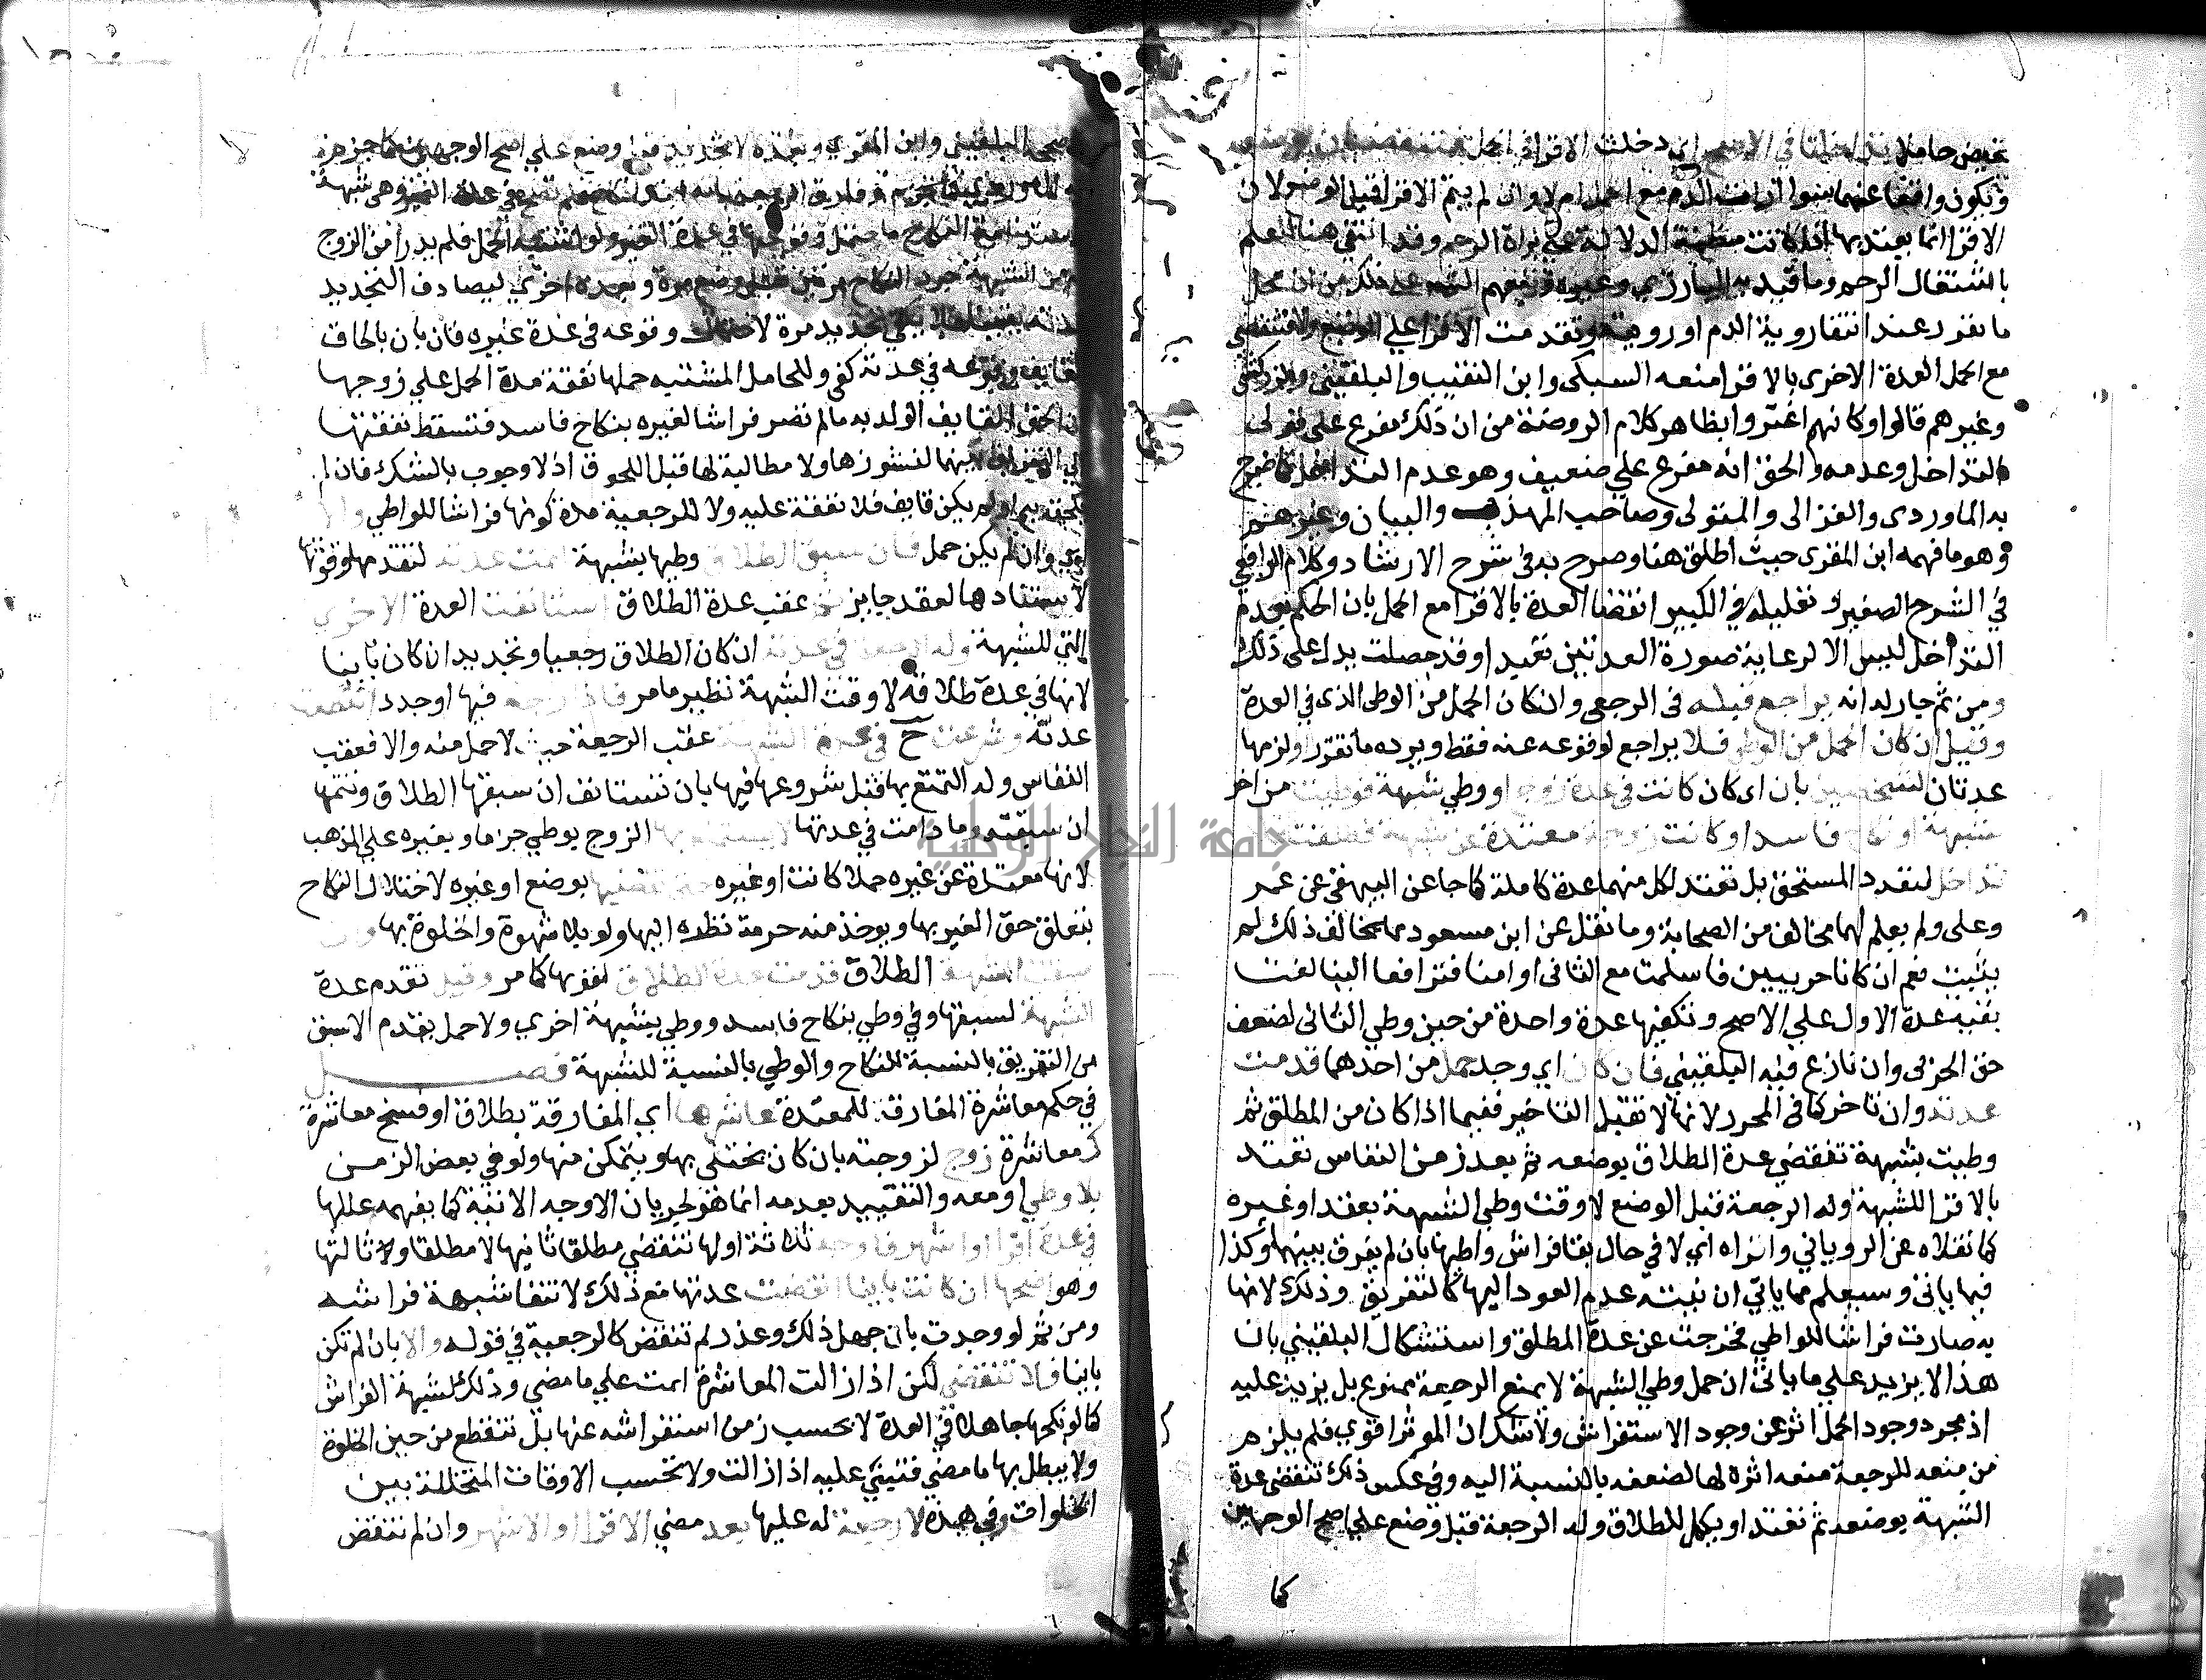 تحيض حاملا تداخلتا في الاصح اي دخلت الاقرا في الحمل فتنقضيان بوضعه
وتكون واقعا عنهما سوا ارات الدم مع الحمل ام لا وان لم يتم الاقرا قبل الوضع لان
الاقرا انما يعتد بها اذا كانت مظنة الدلالة على براة الرحم وقد انتفي هنا للعلم
باشتغال الرحم وما قيد به البارزي وغيره من ان محل
ما تقرر عند انتفا روية الدم او رويته وتقدمت الاقرا علي الوضع والا فتنقضي
مع الحمل العدة الاخرى بالاقرا منعه السبكى وابن النقيب والبلقيني والزركشي
وغيرهم قالوا وكانهم اغتروا بظاهر كلام الروضة من ان ذلك مفرع على قولي
التداخل وعدمه والحق انه مفرع علي ضعيف وهو عدم التداخل كما صرح
به الماوردى والغزالى والمتولى وصاحب المهذب والبيان وغيرهم
وهو ما فهمه ابن المقرى حيث اطلق هنا وصرح به في شرح الارشاد وكلام الرافعي
في الشرح الصغير وتعليله في الكبير انقضا العدة بالاقرا مع الحمل بان الحكم بعدم
التداخل ليس الا لرعاية صورة العدتين تعبدا وقد حصلت يدل على ذلك
ومن ثم جاز له انه يراجع قبله في الرجعي وان كان الحمل من الوطي الذي في العدة
وقيل ان كان الحمل من الوطي فلا يراجع لوقوعه عنه فقط ويرده ما تقرر او لزمها
عدتان لشخصين بان اى كان كانت في عدة زوج او وطي شبهة فوطيت من اخر
بشبهة او نكاح فاسد او كانت زوجة معتدة عن شبهة فطلقت
تداخل لتعدد المستحق بل تعتد لكل منهما عدة كاملة كما جا عن البيهقي عن عمر
وعلى ولم يعلم لهما مخالف من الصحابة وما نقل عن ابن مسعود مما يخالف ذلك لم
يثبت نعم ان كانا حربيين فاسلمت مع الثاني او امنا فترافعا الينا لغت
بقية عدة الاول علي الاصح وتكفيها عدة واحدة من حين وطي الثاني لضعف
حق الحربي وان نازع فيه البلقيني فان كان اي وجد حمل من احدهما قدمت
عدته وان تاخر كما في المحرر لانها لا تقبل التاخير ففيما اذا كان من المطلق ثم
وطيت بشبهة تنقضي عدة الطلاق بوضعه ثم بعد زمن النفاس تعتد
بالاقرا للشبهة وله الرجعة قبل الوضع لا وقت وطي الشبهة بعقد او غيره
كما نقلاه عن الروياني واقراه اي لا في حال بقا فراش واطيها بان لم يفرق بينهما وكذا
فيما ياتي وسيعلم مما ياتي ان نيته عدم العود اليها كالتفريق وذلك لانها
به صارت فراشا للواطي فخرجت عن عدة المطلق واستشكال البلقيني بان
هذا لا يزيد علي ما ياتي ان حمل وطي الشبهة لا يمنع الرجعة ممنوع بل يزيد عليه
اذ مجرد وجود الحمل اثر عن وجود الاستفراش ولا شك ان الموثر اقوي فلم يلزم
من منعه للرجعة منعه اثره لها لضعفه بالنسبة اليه وفي عكس ذلك تنقضي عدة
الشبهة بوضعه ثم تعتد او يكمل للطلاق وله الرجعة قبل وضع علي اصح الوجهين
كما
صححه البلقيني وابن المقري وبعده لا تجديد قبل وضع علي اصح الوجهين كما جزم به
الماوردي
النكاح في عدة الغير ولو اشتبه الحمل فلم يدر امن الزوج
ام من الشبهة جدد النكاح مرتين قبل وضع مرة وبعده اخري ليصادف التجديد
عدته يقينا فلا يكفي تجديد مرة لاحتمال وقوعه في عدة غيره فان بان بالحاق
القايف وقوعه في عدته كفي وللحامل المشتبه حملها نفقة مدة الحمل علي زوجها
ان الحق القايف الولد به ما لم تصر فراشا لغيره بنكاح فاسد فتسقط نفقتها
الي التفريق بينهما لنشوزها ولا مطالبة لها قبل اللحوق اذ لا وجوب بالشك فان لم
يلحقه به او لم يكن قايف فلا نفقة عليه ولا للرجعية مدة كونها فراشا للواطي والا
اي وان لم يكن حمل فان سبق الطلاق وطيها بشبهة اتمت عدته لتقدمها وقوتها
لاستنادها لعقد جايز ثم عقب عدة الطلاق استانفت العدة الاخري
التي للشبهة وله الرجعة في عدته ان كان الطلاق رجعيا وتجديد ان كان باينا
لانها في عدة طلاقه لا وقت الشبهة نظير ما مر فاذا راجعه فيها او جدد انقضت
عدته وشرعت ح في عدة الشبهة عقب الرجعة حيث لا حمل منه والا فعقب
النفاس وله التمتع بها قبل شروعها فيها بان تستانف ان سبقها الطلاق وتتمها
ان سبقته وما دامت في عدتها لا يستمتع بها الزوج بوطي جزما وبغيره علي المذهب
لانها معتدة عن غيره حملا كانت او غيره حتي تقضيها بوضع او غيره لاختلال النكاح
بتعلق حق الغير بها ويوخذ منه حرمة نظره اليها ولو بلا شهوة والخلوة بها وان
سبقت الشبهة الطلاق قدمت عدة الطلاق لقوتها كما مر وقيل تقدم عدة
الشبهة لسبقها وفي وطي بنكاح فاسد ووطي بشبهة اخري ولا حمل يقدم الاسبق
من التفريق بالنسبة للنكاح والوطي بالنسبة للشبهة فصل
في حكم معاشرة المفارق للمعتدة عاشرها اي المفارقة بطلاق او فسخ معاشرة
كمعاشرة زوج لزوجته بان كان يختلي بها ويتمكن منها ولو في بعض الزمن
بلا وطي او معه والتقييد بعدمه انما هو لجريان الاوجه الاتية كما يفهمه عللها
في عدة اقرا او اشهر فاوجه ثلاثة اولها تنقضي مطلقا ثانيها لا مطلقا وثالثها
وهو اصحها ان كانت باينا انقضت عدتها مع ذلك لانتفا شبهة فراشه
ومن ثم لو وجدت بان جهل ذلك وعذر لم تنقض كالرجعية في قوله والا بان لم تكن
باينا فلا تنقضي لكن اذا زالت المعاشرة اتمت علي ما مضي وذلك لشبهة الفراش
كما لو نكحها جاهلا في العدة لا يحسب زمن استفراشه عنها بل تنقطع من حين الخلوة
ولا يبطل بها ما مضي فتبني عليه اذا زالت ولا تحسب الاوقات المتخللة بين
الخلوات وفي هذه لا رجعة له عليها بعد مضي الاقرا او الاشهر وان لم تنقض